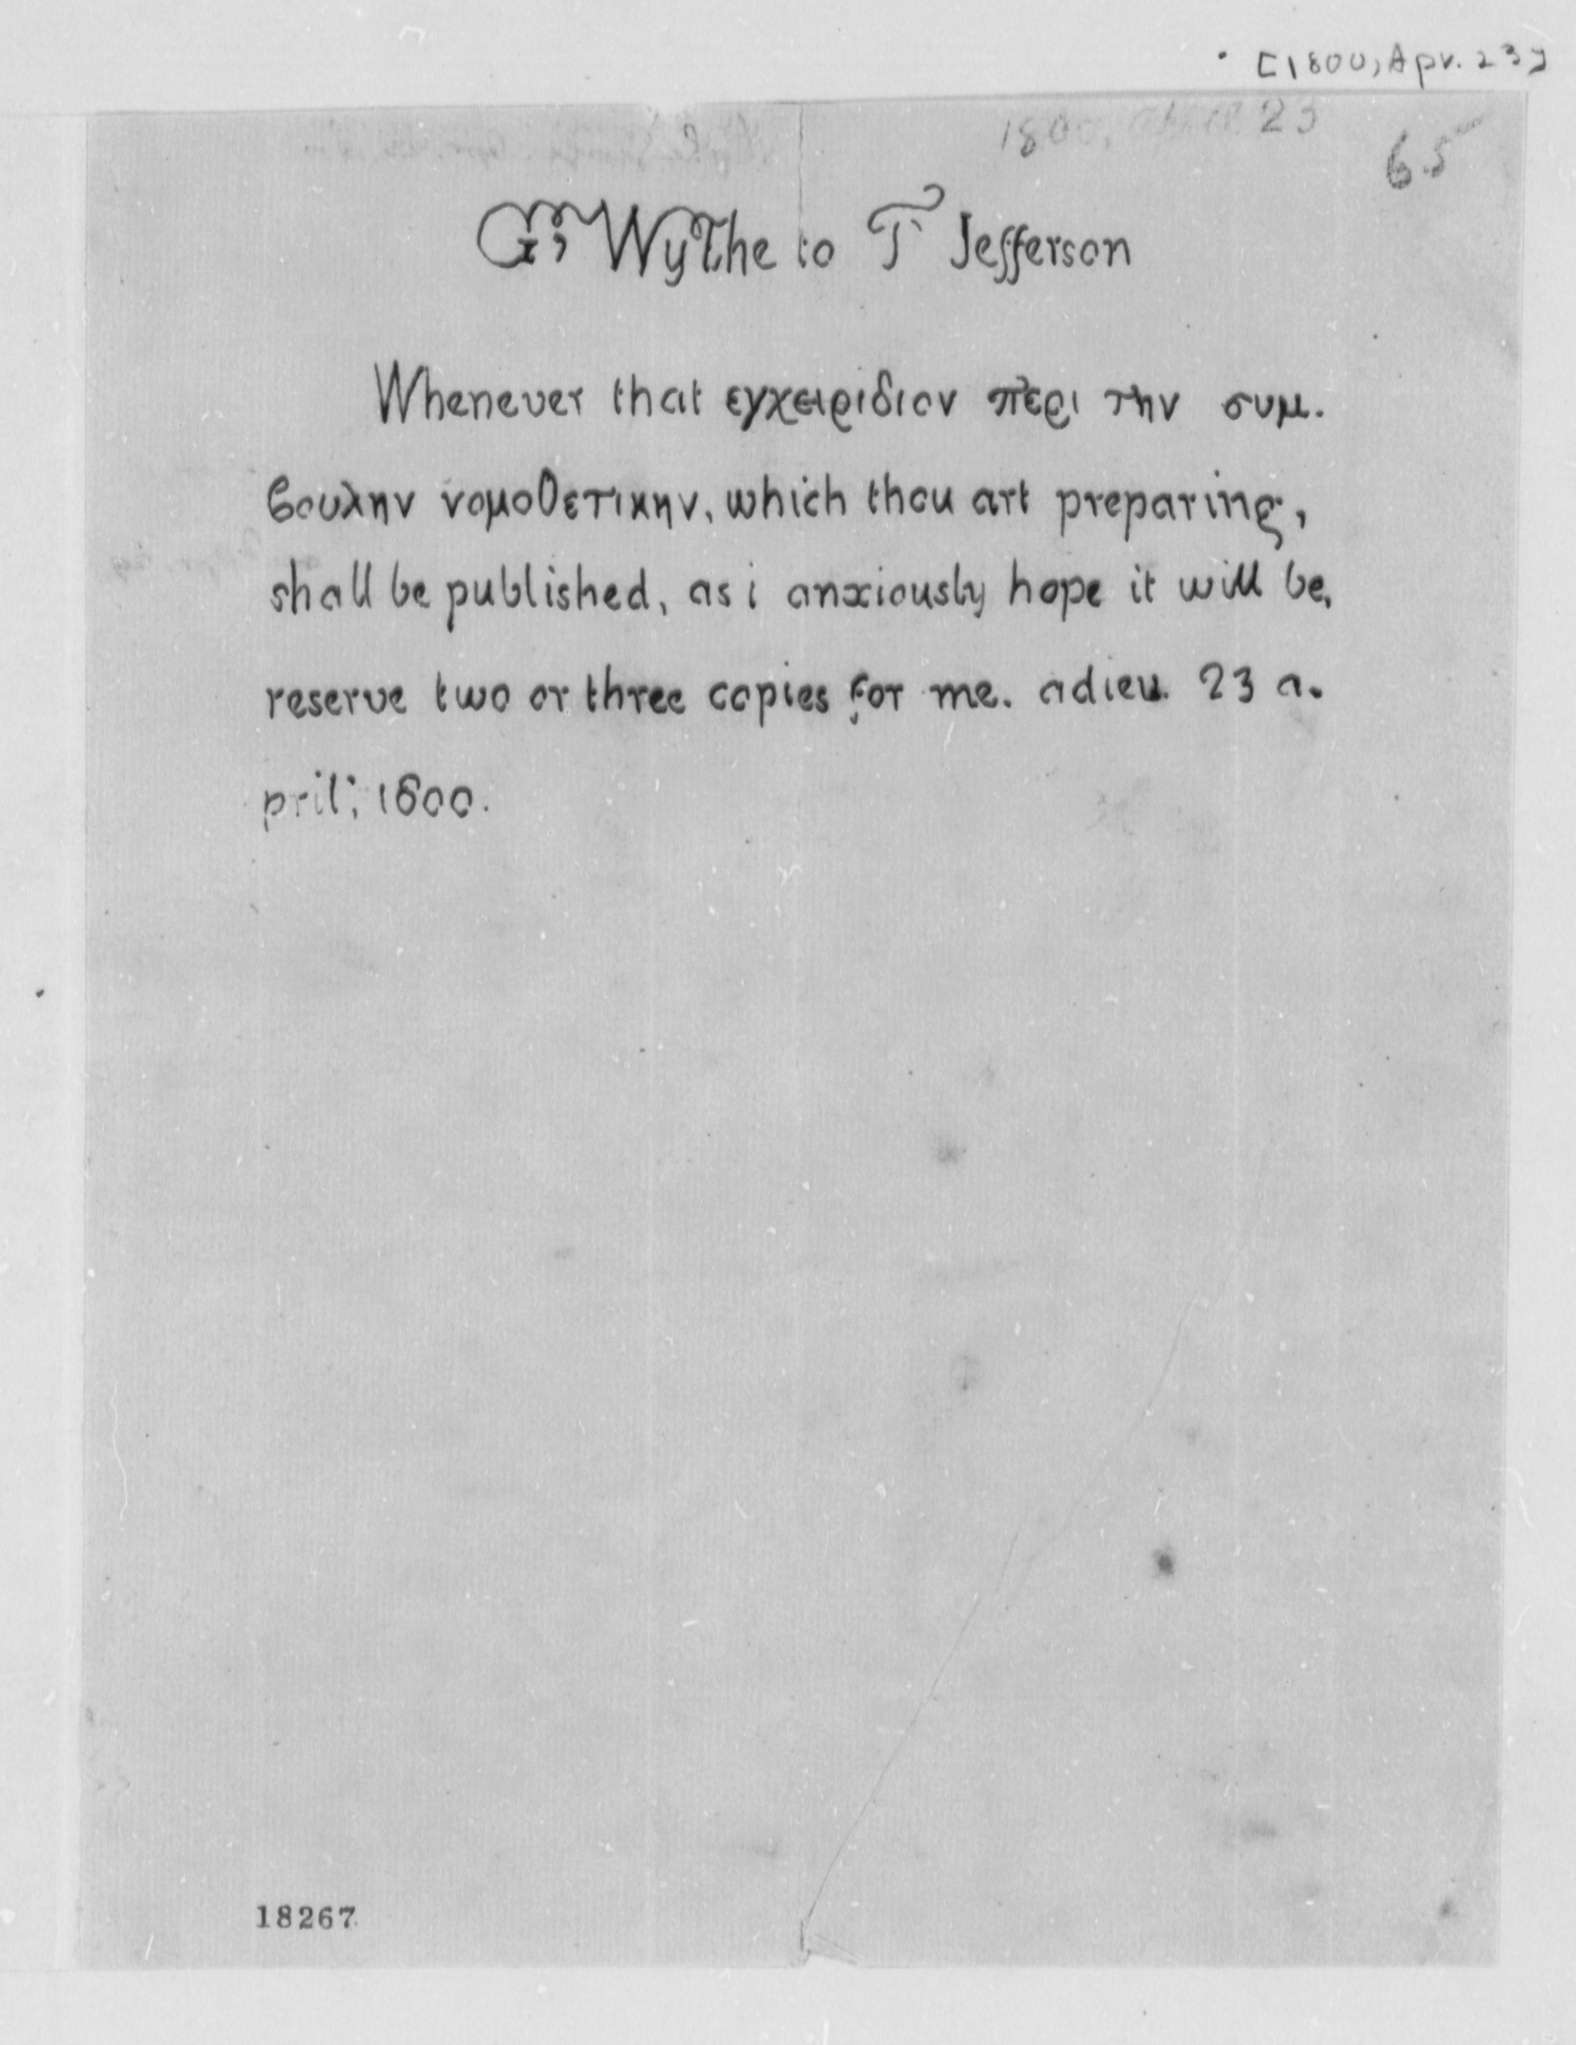 [1800, Apr. 23]
1800, 23
65
G, Wythe to T Jefferson
Whenever that εγχειριδιον περι την συμ.
βουλην νομοθετικην, which thou art preparing,
shall be published, as i anxiously hope it will be,
reserve two or three copies for me. adieu. 23 a.
pril, 1800.
18267